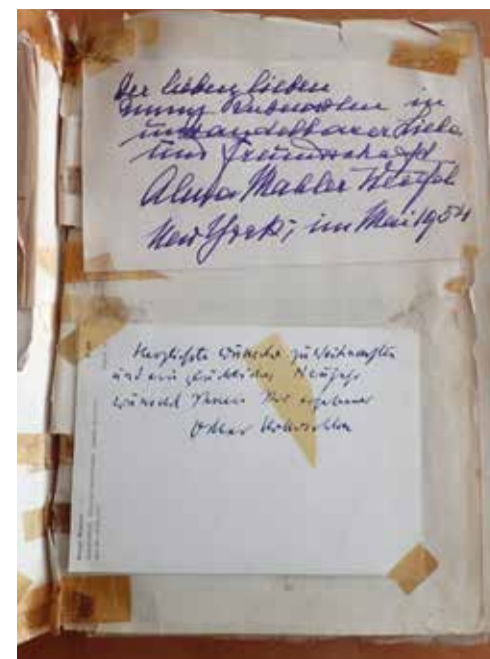 Der lieben lieben
in
unwandelbarer Liebe
und Freundschaft
Alma Mahler Werfel
New York, im Mai 1954
Herzlichste Wünsche zu Weihnachten
und ein glückliches Neujahr
wünscht Ihnen Ihr ergebener
Oskar Kokoschka